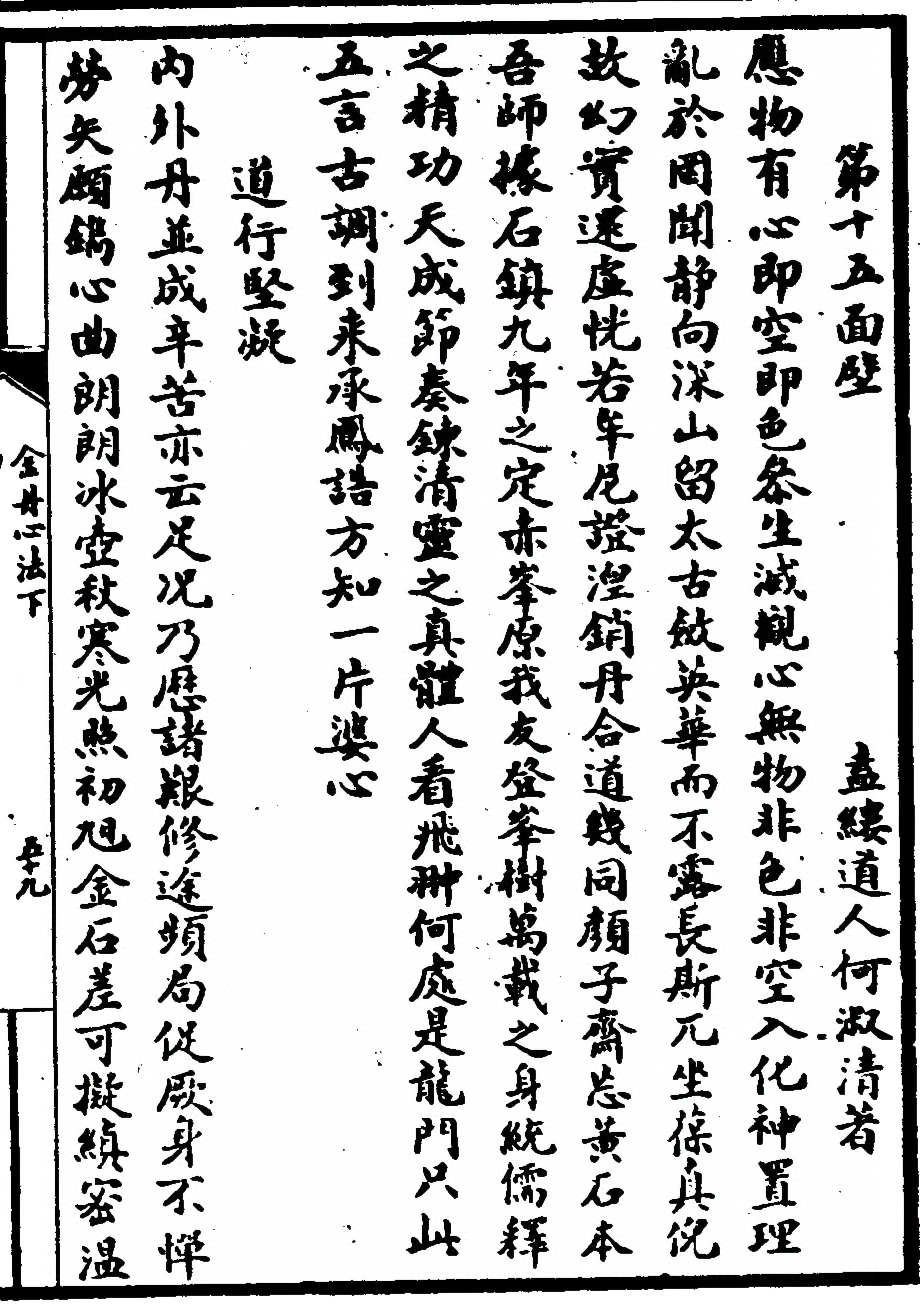 第十五面壁　盍縷道人何淑清著
應物有心即空即色叅生滅觀心無物非色非空入化神置理
亂於罔聞静向深山留太古斂英華而不露長斯兀坐葆真倪
故幻實還虛恍若牟尼證湼銷丹合道幾同顏子齋忘黃石本
吾師據石鎮九年之定赤峯原我友登峯樹萬載之身統儒釋
之精功天成節奏鍊清靈之真體人看飛翀何處是龍門只此
五言古調到来承鳳誥方知一片婆心
道行堅凝
内外丹並成辛苦亦云足况乃歷諸艱修途頻局促厥身不憚
勞矢願鐫心曲朗朗冰壺秋寒光照初旭金石差可擬縝密温
金丹心法下
五十九